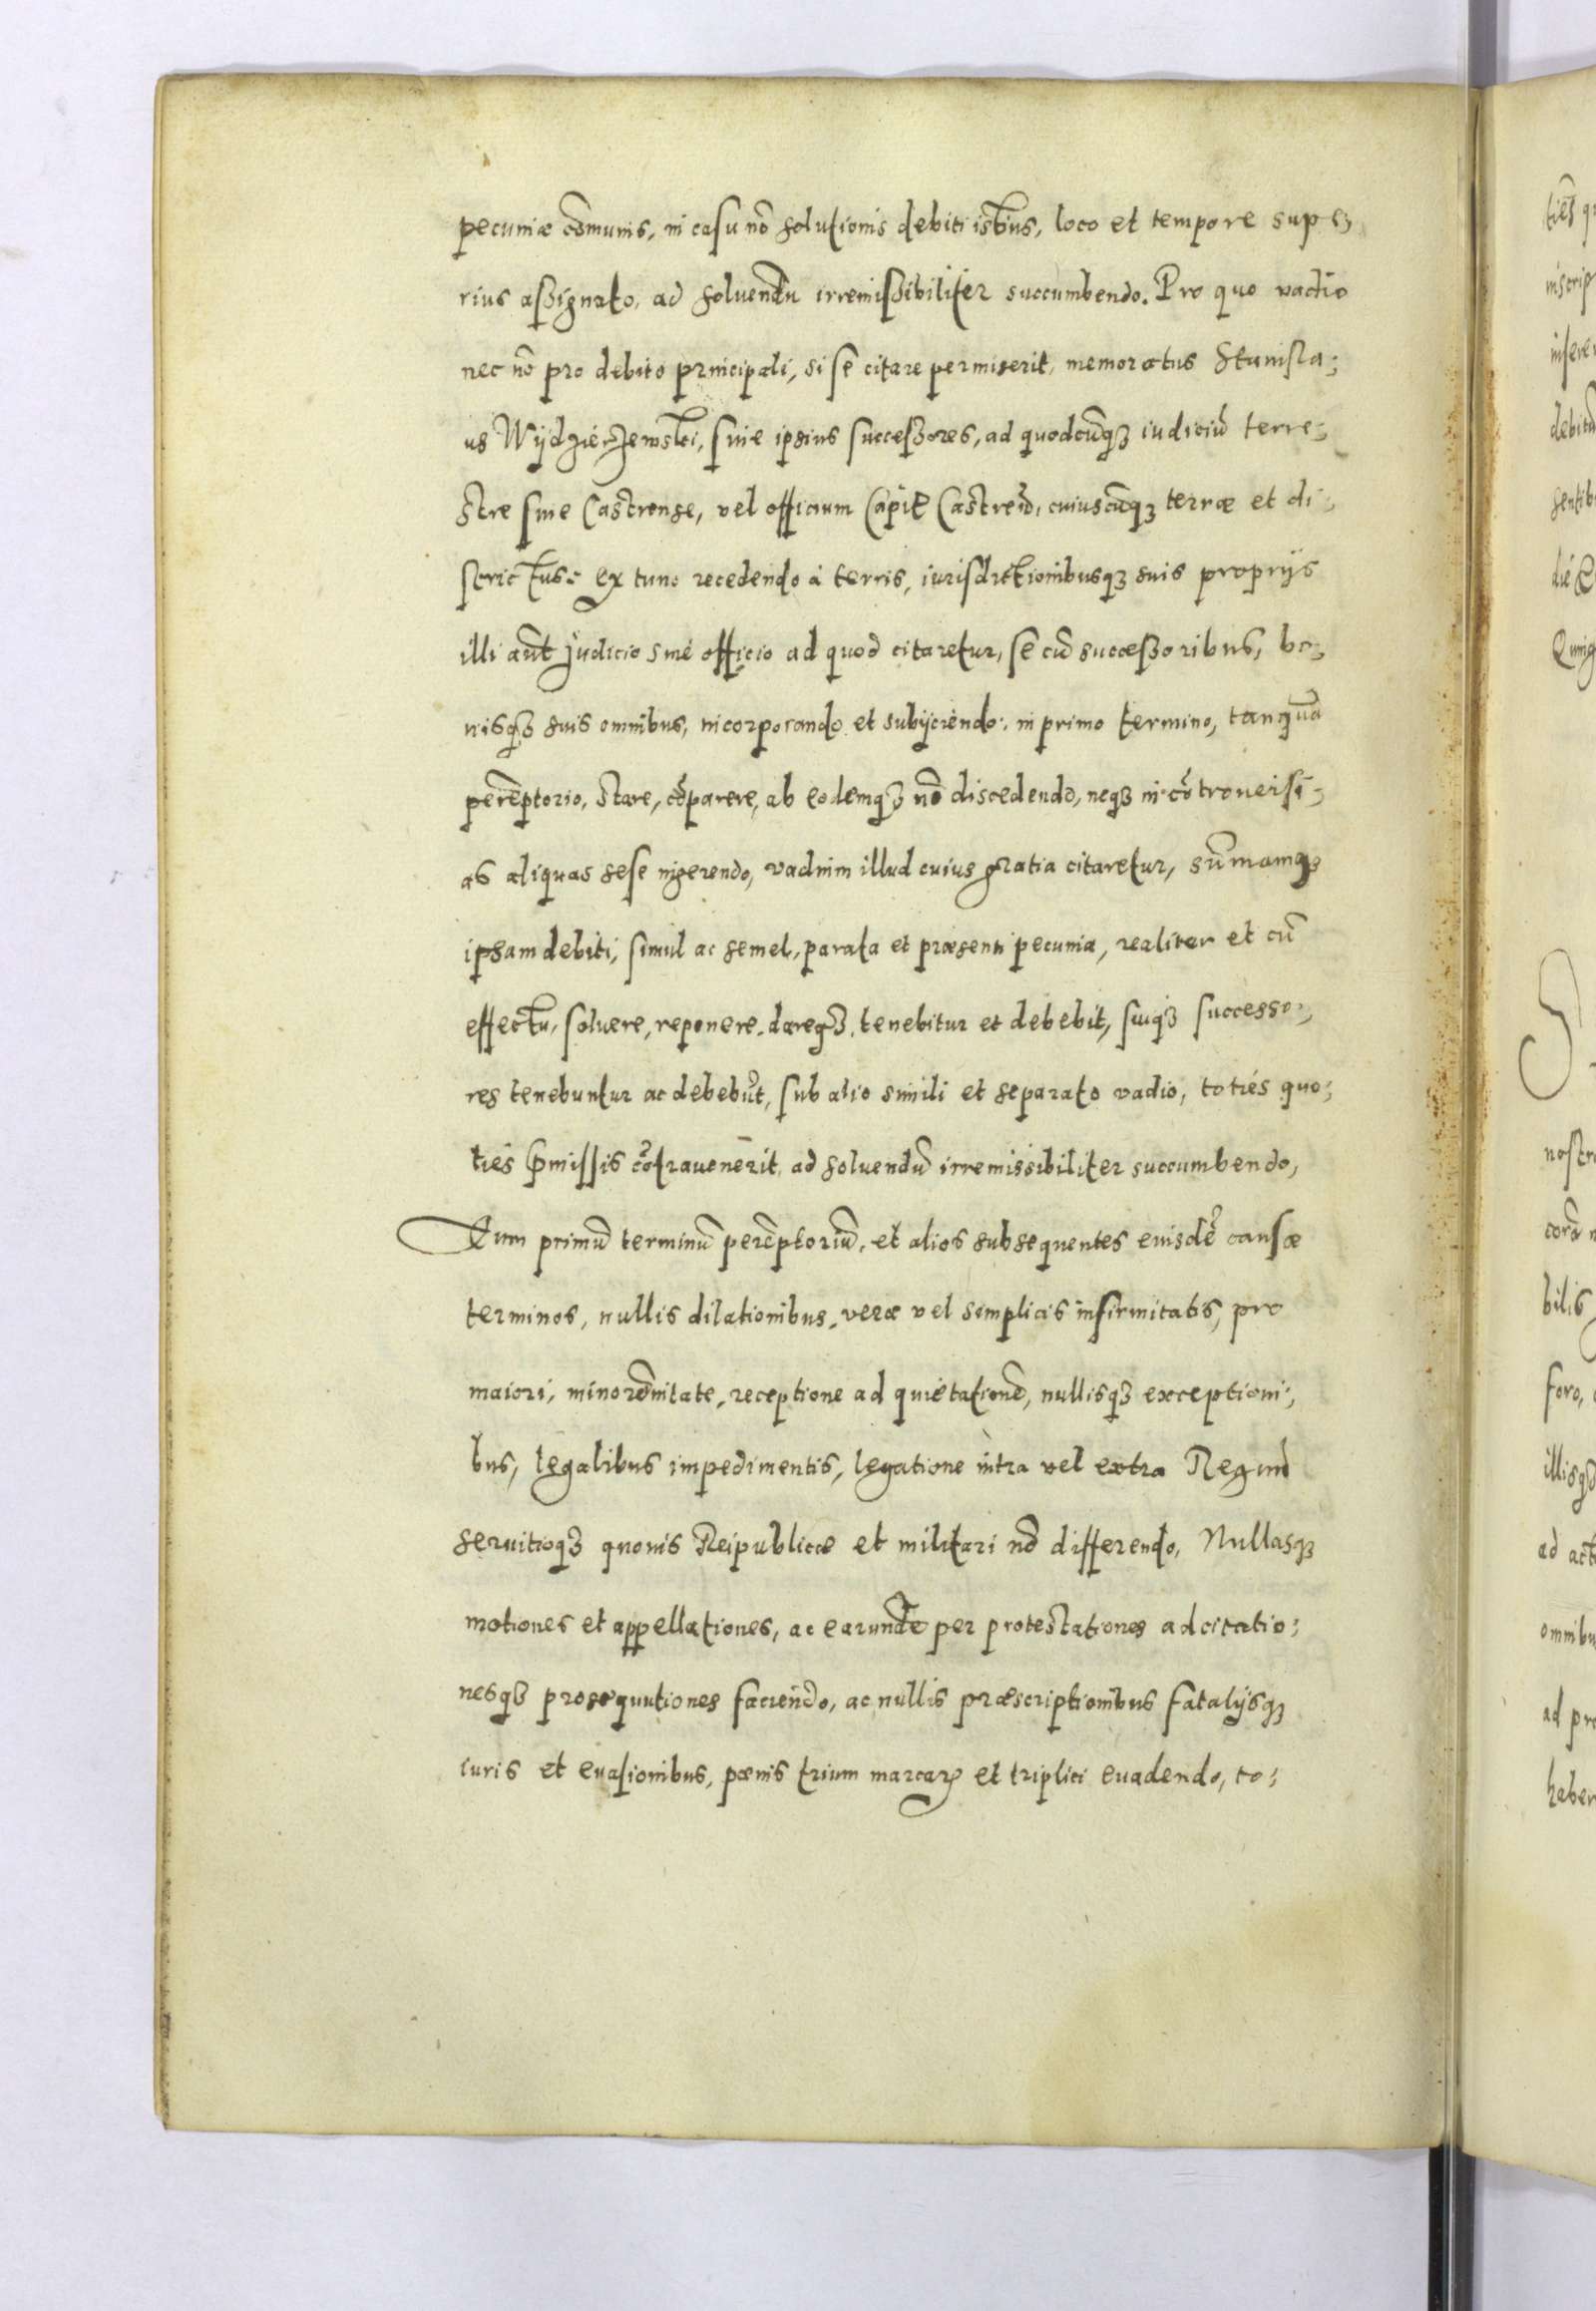 pecuniæ cõmunis, in casu nõ solutionis debiti istius, loco et tempore supe⸗
rius assignato, ad soluendũ irremissibiliter succumbendo. Pro quo vadio
nec nõ pro debito principali, si se citare permiserit, memoratus Stanisla⸗
us Wÿdzierzewski, siue ipsius successores, ad quodcũqꝫ iudiciũ terre⸗
stre siue Castrense, vel officium Capit Castren̄, cuiuscũqꝫ terræ et di⸗
strictus: ex tunc recedendo à terris, iurisdictionibusqꝫ suis proprijs
illi aũt Judicio siue officio ad quod citaretur, se cũ successoribus, bo⸗
nisqꝫ suis omnibus, incorporando et subijciendo: in primo termino, tanquã
perẽptorio, stare, cõparere, ab eodemqꝫ nõ discedendo, neqꝫ in cõtrouersi⸗
as aliquas sese ingerendo, vadium illud cuius gratia citaretur, sũmamqꝫ
ipsam debiti, simul ac semel, parata et præsenti pecunia, realiter et cũ
effectu, soluere, reponere, dareqꝫ, tenebitur et debebit, suiqꝫ successo⸗
res tenebuntur ac debebũt, sub alio simili et separato vadio, toties quo⸗
ties p̃missis cõtrauenerit, ad soluendũ irremissibiliter succumbendo,
Eum primũ terminũ perẽptoriũ, et alios subsequentes eiusdẽ causæ
terminos, nullis dilationibus, veræ vel simplicis infirmitatis, pro
maiori, minorẽnitate, receptione ad quietationẽ, nullisqꝫ exceptioni⸗
bus, legalibus impedimentis, legatione intra vel extra Regnũ
seruitioqꝫ quouis Reipublicæ et militari nõ differendo, Nullasqꝫ
motiones et appellationes, ac earundẽ per protestationes ad citatio⸗
nesqꝫ prosequutiones faciendo, ac nullis præscriptionibus fatalijsqꝫ
iuris et euasionibus, pœnis trium marcarꝝ et triplici euadendo, to⸗